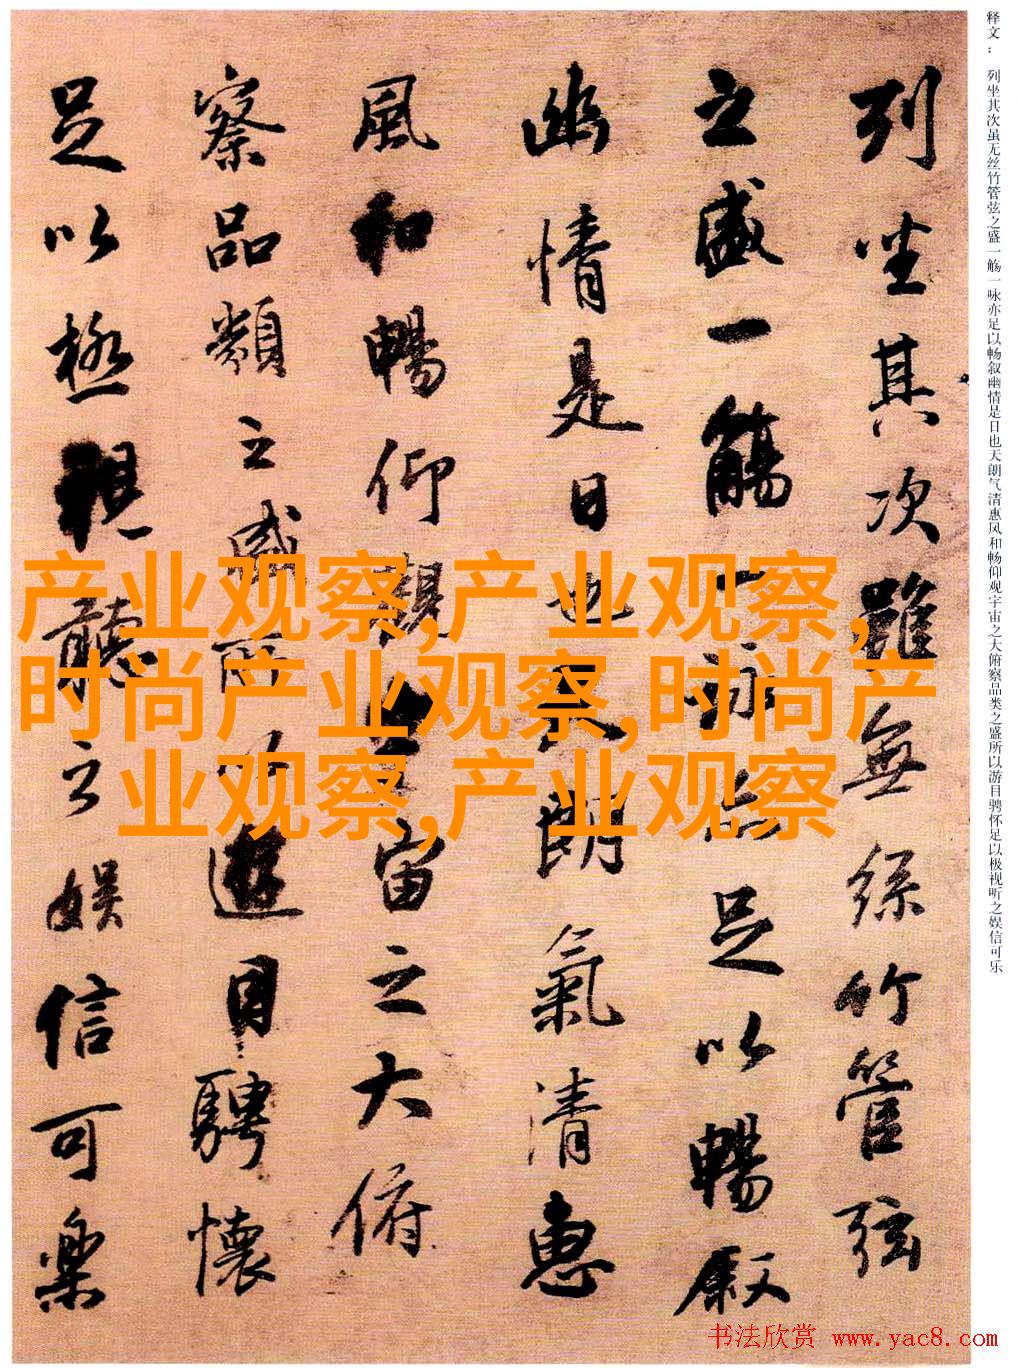 释文：列坐其次虽无丝竹管弦之盛一觞一咏亦足以畅叙幽情是日也天朗气清惠风和畅仰观宇宙之大俯察品类之盛所以游目骋怀足以极视听之娱信可乐
列坐其次雖無絲竹管弦
之盛一觴一詠亦足以暢叙
幽情是日也天朗氣清惠
風和暢仰觀宇宙之大俯
察品類之盛所以遊目騁懷
足以極視聽之娛信可樂
产业观察,产业观察,
时尚产业观察,时尚产
业观察,产业观察
书法欣赏 www.yac8.com